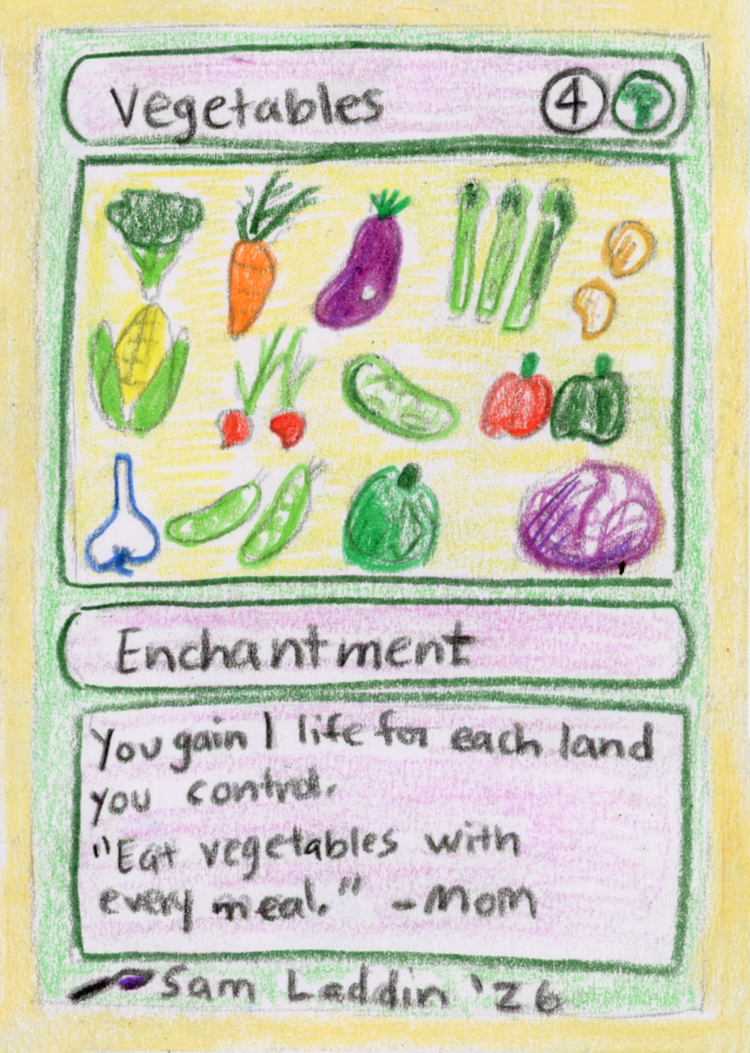 Vegetables 4
Enchantment
You gain 1 life for each land
you control.
"Eat vegetables with
every meal." -Mom
Sam Laddin '26